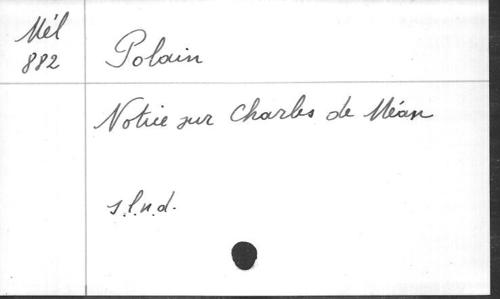 Mél
882
Polain
Notice sur Charles de Méan
s.l.n.d.